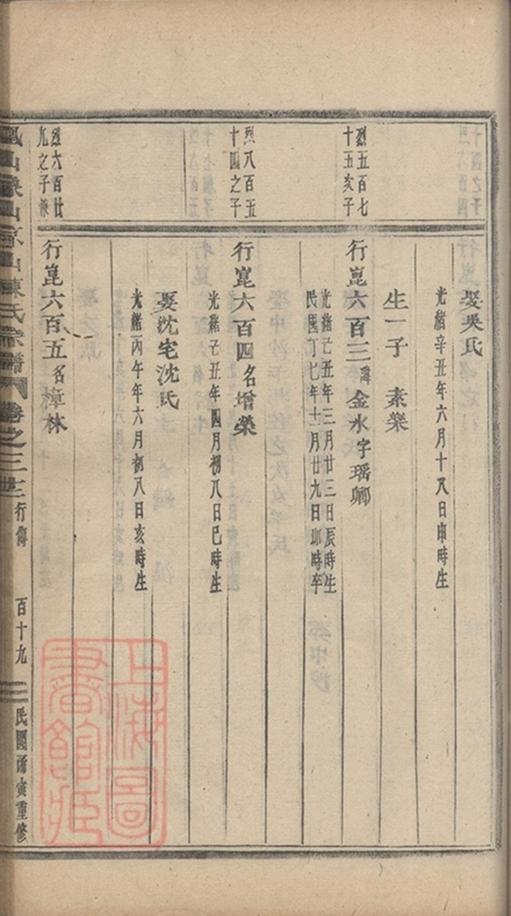 娶吳氏
光緒辛丑年六月十八日申時生
生一子 素樂
烈五百七
十五亥子
行崑六百三諱金水字瑶卿
光緒己丑年三月廿三日辰時生
民國丁七年十月廿九日卯時卒
烈八百五
十四之子
行崑六百四名增榮
光緒己丑年四月初八日巳時生
娶沈宅沈氏
光緒丙午年六月初八日亥時生
烈六百廿
九之子
行崑六百五名樟林
山泉山京山陳氏宗譜 卷之三十三 行傳 百十九 民國丙寅重修
上海圖書館藏